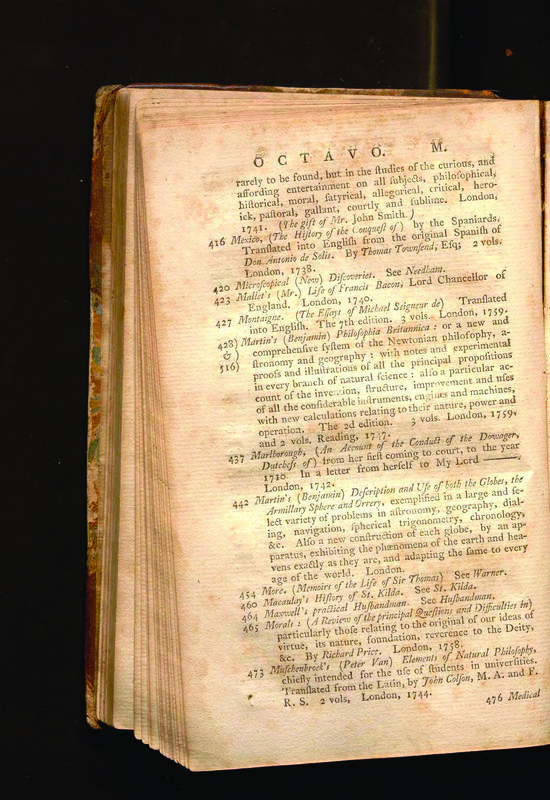 OCTAVO. M.
rarely to be found, but in the ſtudies of the curious, and
affording entertainment on all ſubjects, philoſophical,
hiſtorical, moral, ſatyrical, allegorical, critical, hero-
ick, paſtoral, gallant, courtly and ſublime. London,
1741. (The gift of Mr. John Smith.)
416 Mexico, (The Hiſtory of the Conqueſt of) by the Spaniards.
Tranſlated into Engliſh from the original Spaniſh of
Don Antonio de Solis. By Thomas Townſend, Eſq; 2 vols.
London, 1738.
420 Microſcopical (New) Diſcoveries. See Needham.
423 Mallet's (Mr.) Life of Francis Bacon, Lord Chancellor of
England. London, 1740.
427 Montaigne. (The Eſſays of Michael Seigneur de) Tranſlated
into Engliſh. The 7th edition. 3 vols. London, 1759.
428) Martin's (Benjamin) Philoſophia Britannica: or a new and
& ) comprehenſive ſyſtem of the Newtonian philoſophy, a-
516) ſtronomy and geography: with notes and experimental
proofs and illuſtrations of all the principal propoſitions
in every branch of natural ſcience: alſo a particular ac-
count of the invention, ſtructure, improvement and uſes
of all the conſiderable inſtruments, engines and machines,
with new calculations relating to their nature, power and
operation. The 2d edition. 3 vols. London, 1759,
and 2 vols. Reading, 1747.
437 Marlborough, (An Account of the Conduct of the Dowager,
Dutcheſs of) from her firſt coming to court, to the year
1710. In a letter from herſelf to My Lord ———,
London, 1742.
442 Martin's (Benjamin) Deſcription and Uſe of both the Globes, the
Armillary Sphere and Orrery, exemplified in a large and ſe-
lect variety of problems in aſtronomy, geography, dial-
ing, navigation, ſpherical trigonometry, chronology,
&c. Alſo a new conſtruction of each globe, by an ap-
paratus, exhibiting the phœnomena of the earth and hea-
vens exactly as they are, and adapting the ſame to every
age of the world. London.
454 More. (Memoirs of the Life of Sir Thomas) See Warner.
460 Macaulay's Hiſtory of St. Kilda. See St. Kilda.
464 Maxwell's practical Huſbandman. See Huſbandman.
465 Morals: (A Review of the principal Queſtions and Difficulties in)
particularly thoſe relating to the original of our ideas of
virtue, its nature, foundation, reverence to the Deity,
&c. By Richard Price. London, 1758.
473 Muſchenbroek's (Peter Van) Elements of Natural Philoſophy,
chiefly intended for the uſe of ſtudents in univerſities.
Tranſlated from the Latin, by John Colſon, M. A. and F.
R. S. 2 vols, London, 1744.
476 Medical